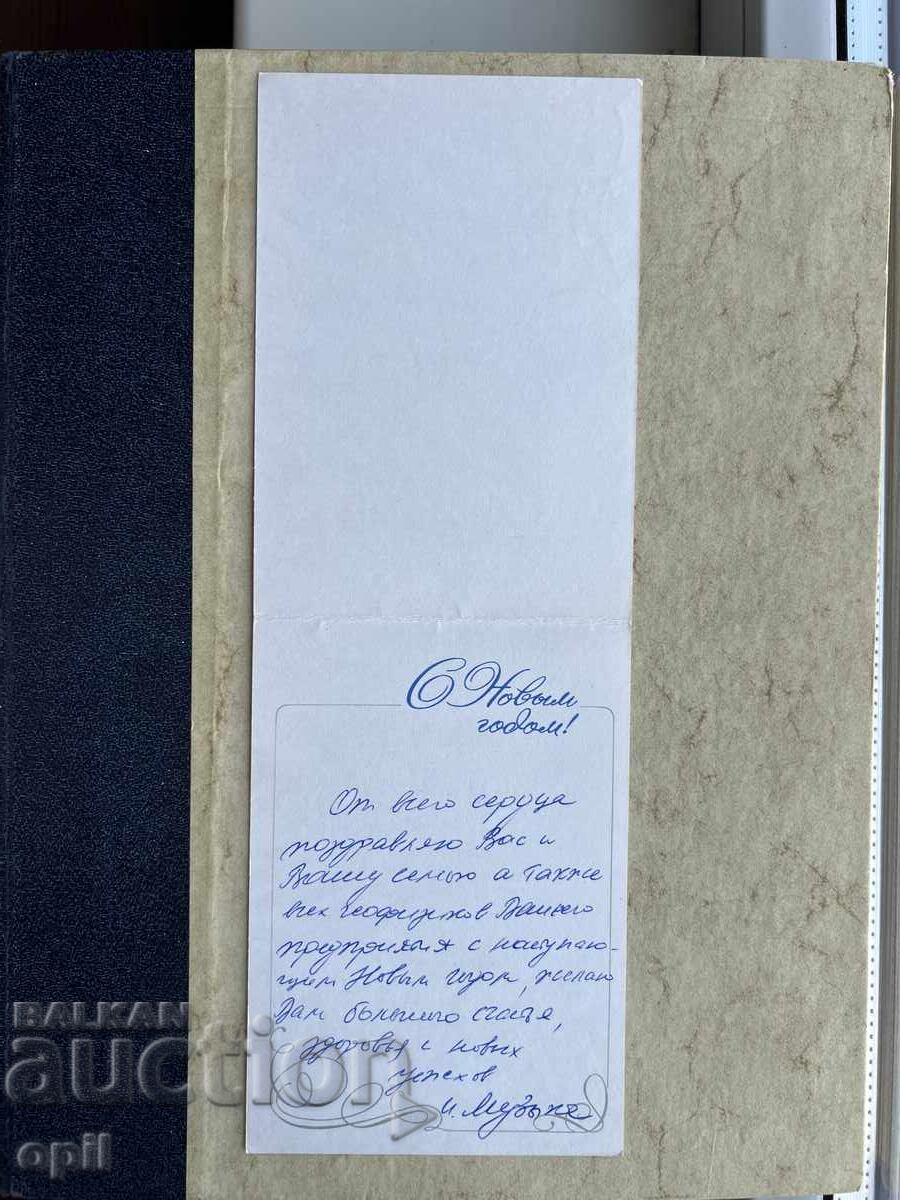 С Новым
годом!
От всего сердца
поздравляю Вас и
Вашу семью а также
всех геофизиков Вашего
предприятия с наступаю-
щим Новым годом, желаю
Вам большого счастья,
здоровья и новых
успехов
И. Музыка
BALKAN
auction
opil